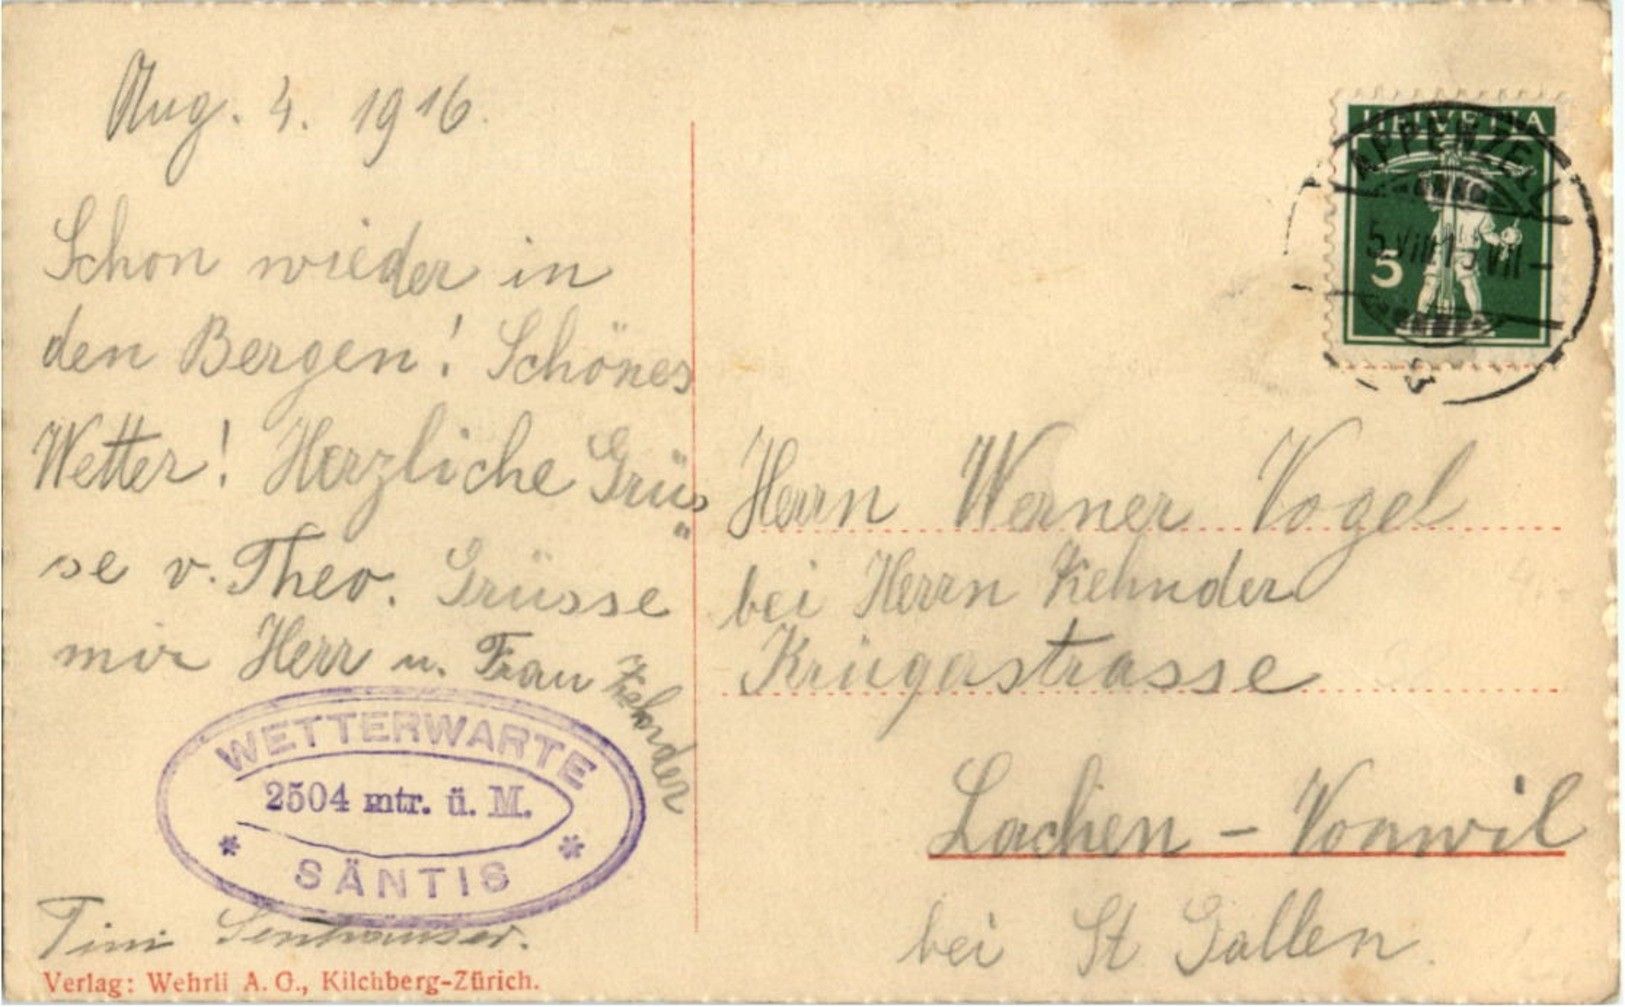 Aug. 4. 1916.
Schon wieder in
den Bergen! Schönes
Wetter! Herzliche Grüs
se v. Theo. Grüsse
mir Herr u. Frau Zehnder
WETTERWARTE
2504 mtr. ü. M.
SÄNTIS
Tini Senhauser.
Verlag: Wehrli A. G., Kilchberg-Zürich.
HELVETIA
5
APPENZELL
Herrn Werner Vogel
bei Herrn Zehnder
Krügastrasse
Lachen - Vonwil
bei St Gallen.